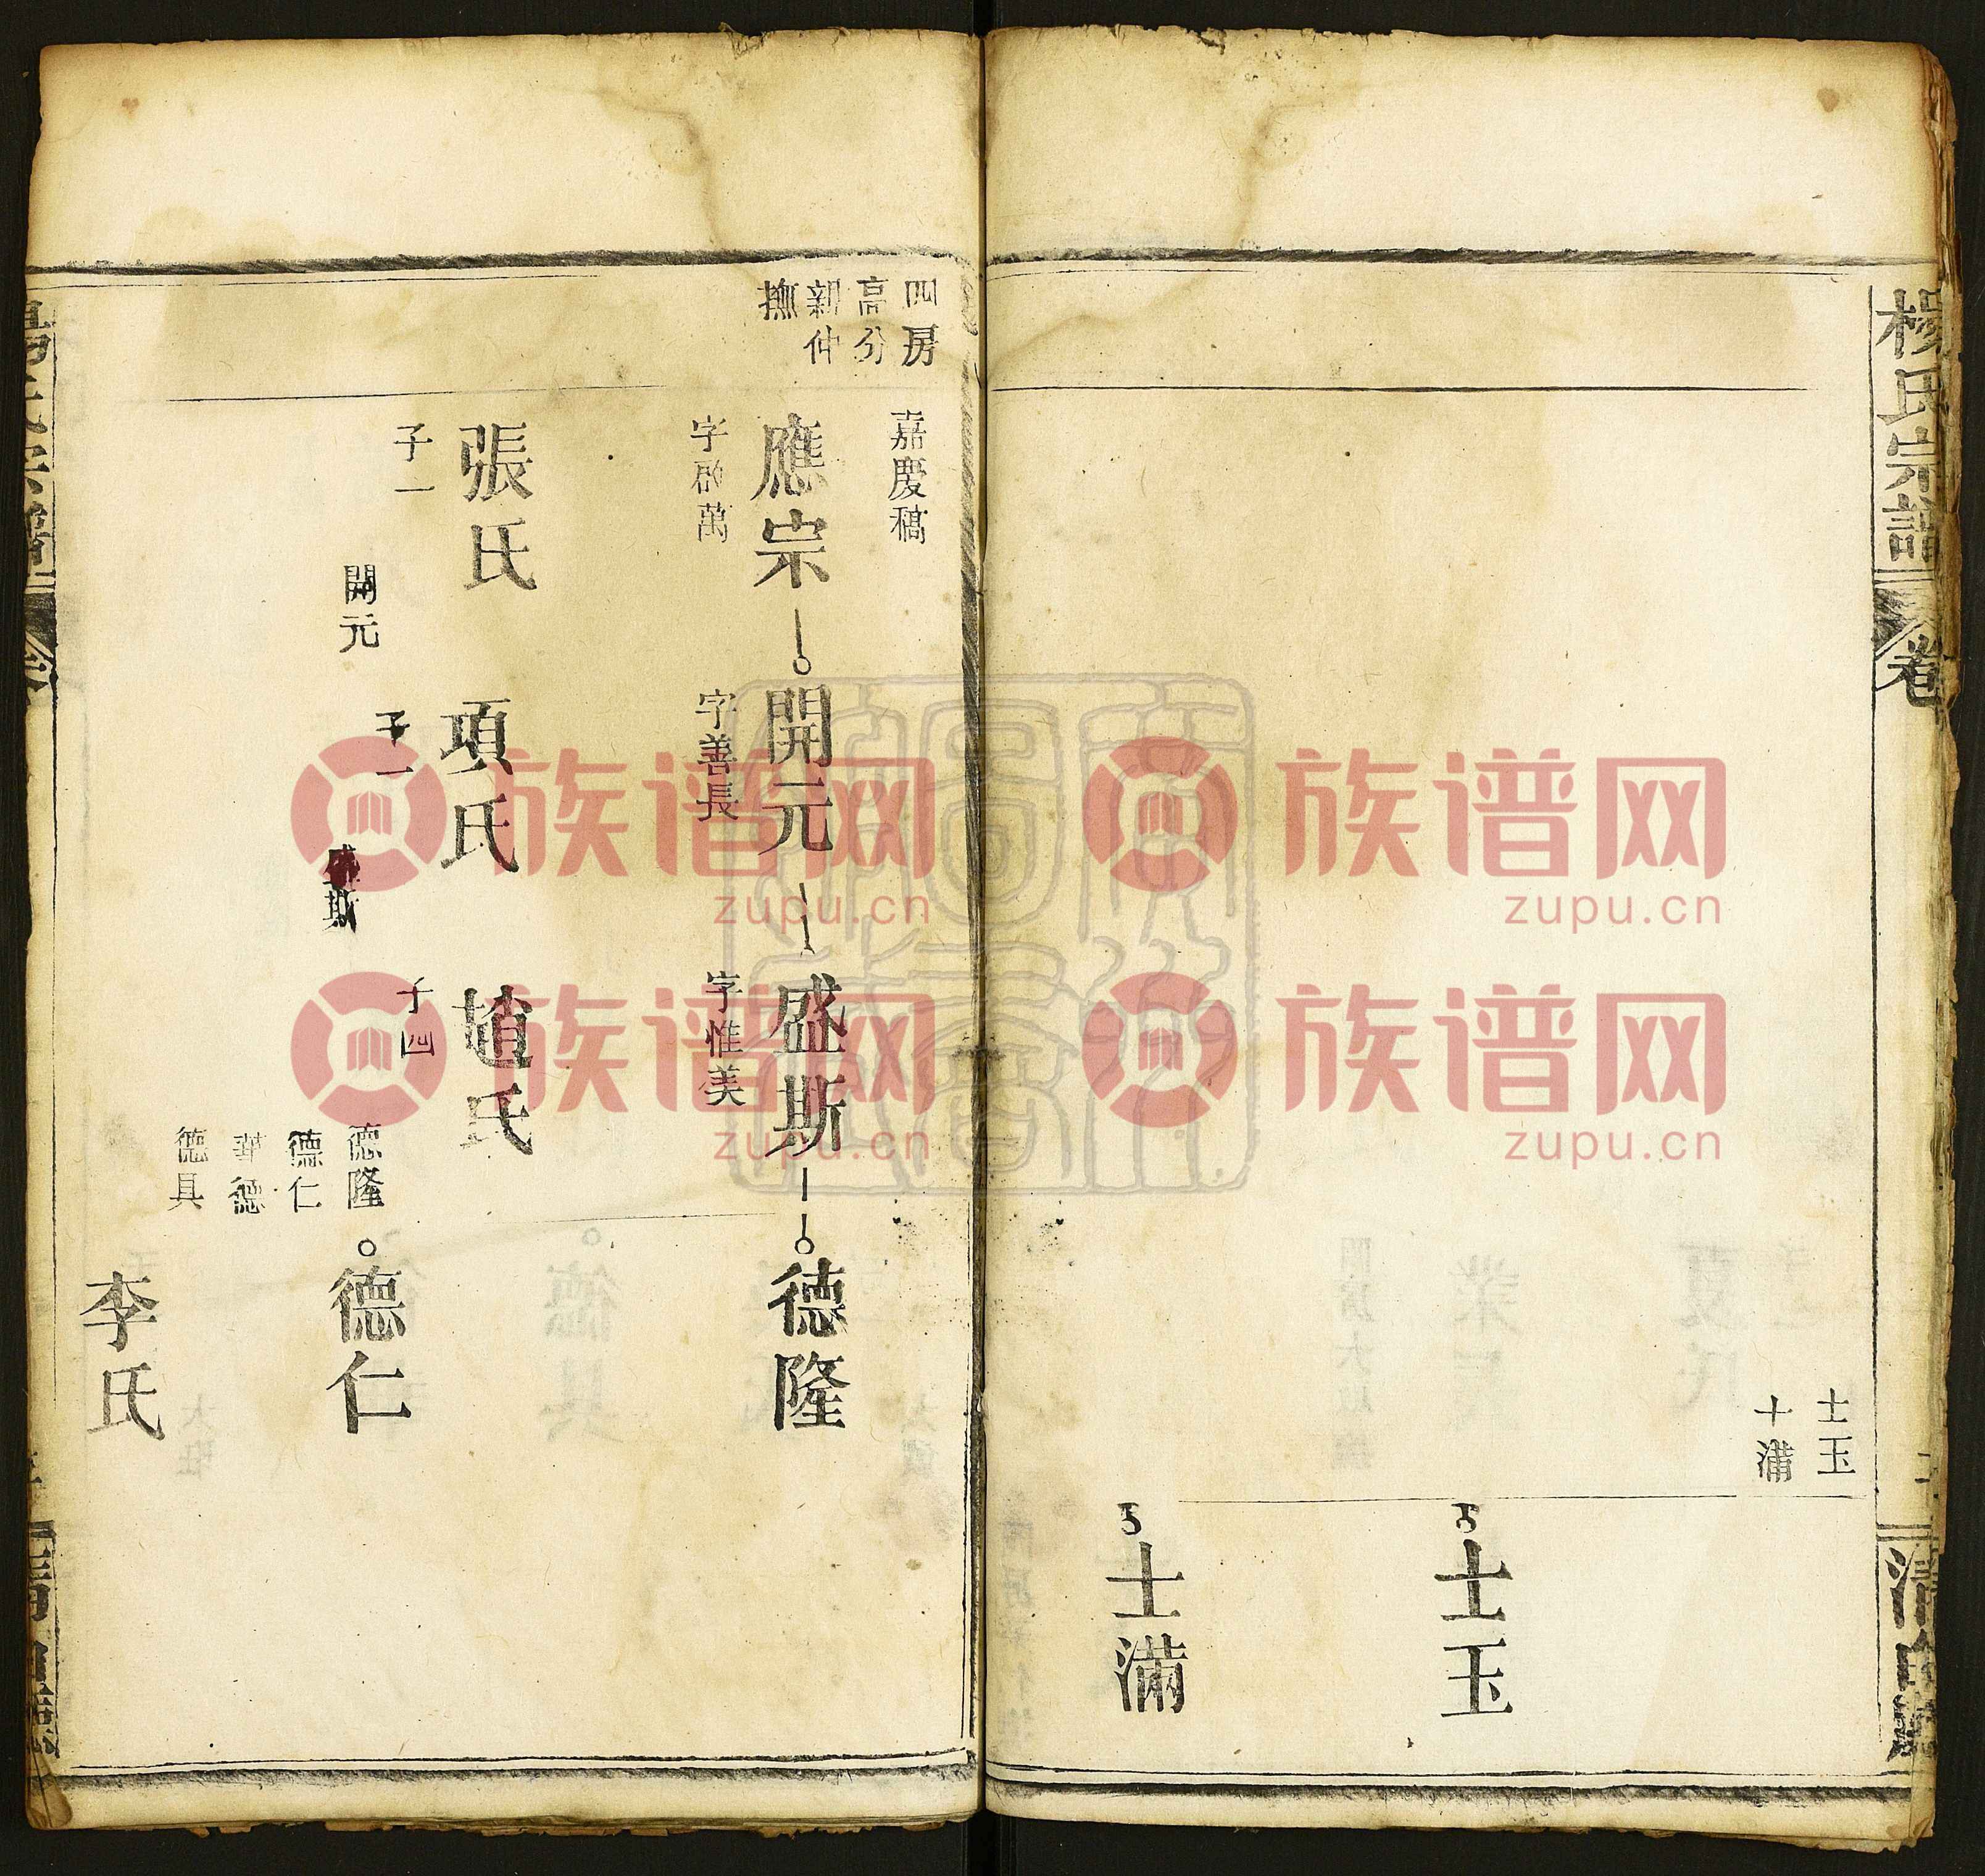 楊氏宗譜
卷
士玉
十滿
士玉
士滿
四房
高分
新仲
撫
嘉慶稿
應宗
開元
盛斯
德隆
字啟萬
字善長
字惟美
張氏
項氏
趙氏
子一
開元
子一
盛斯
子四
德隆
德仁
華德
德具
德仁
李氏
族谱网
zupu.cn
族谱网
zupu.cn
族谱网
zupu.cn
族谱网
zupu.cn